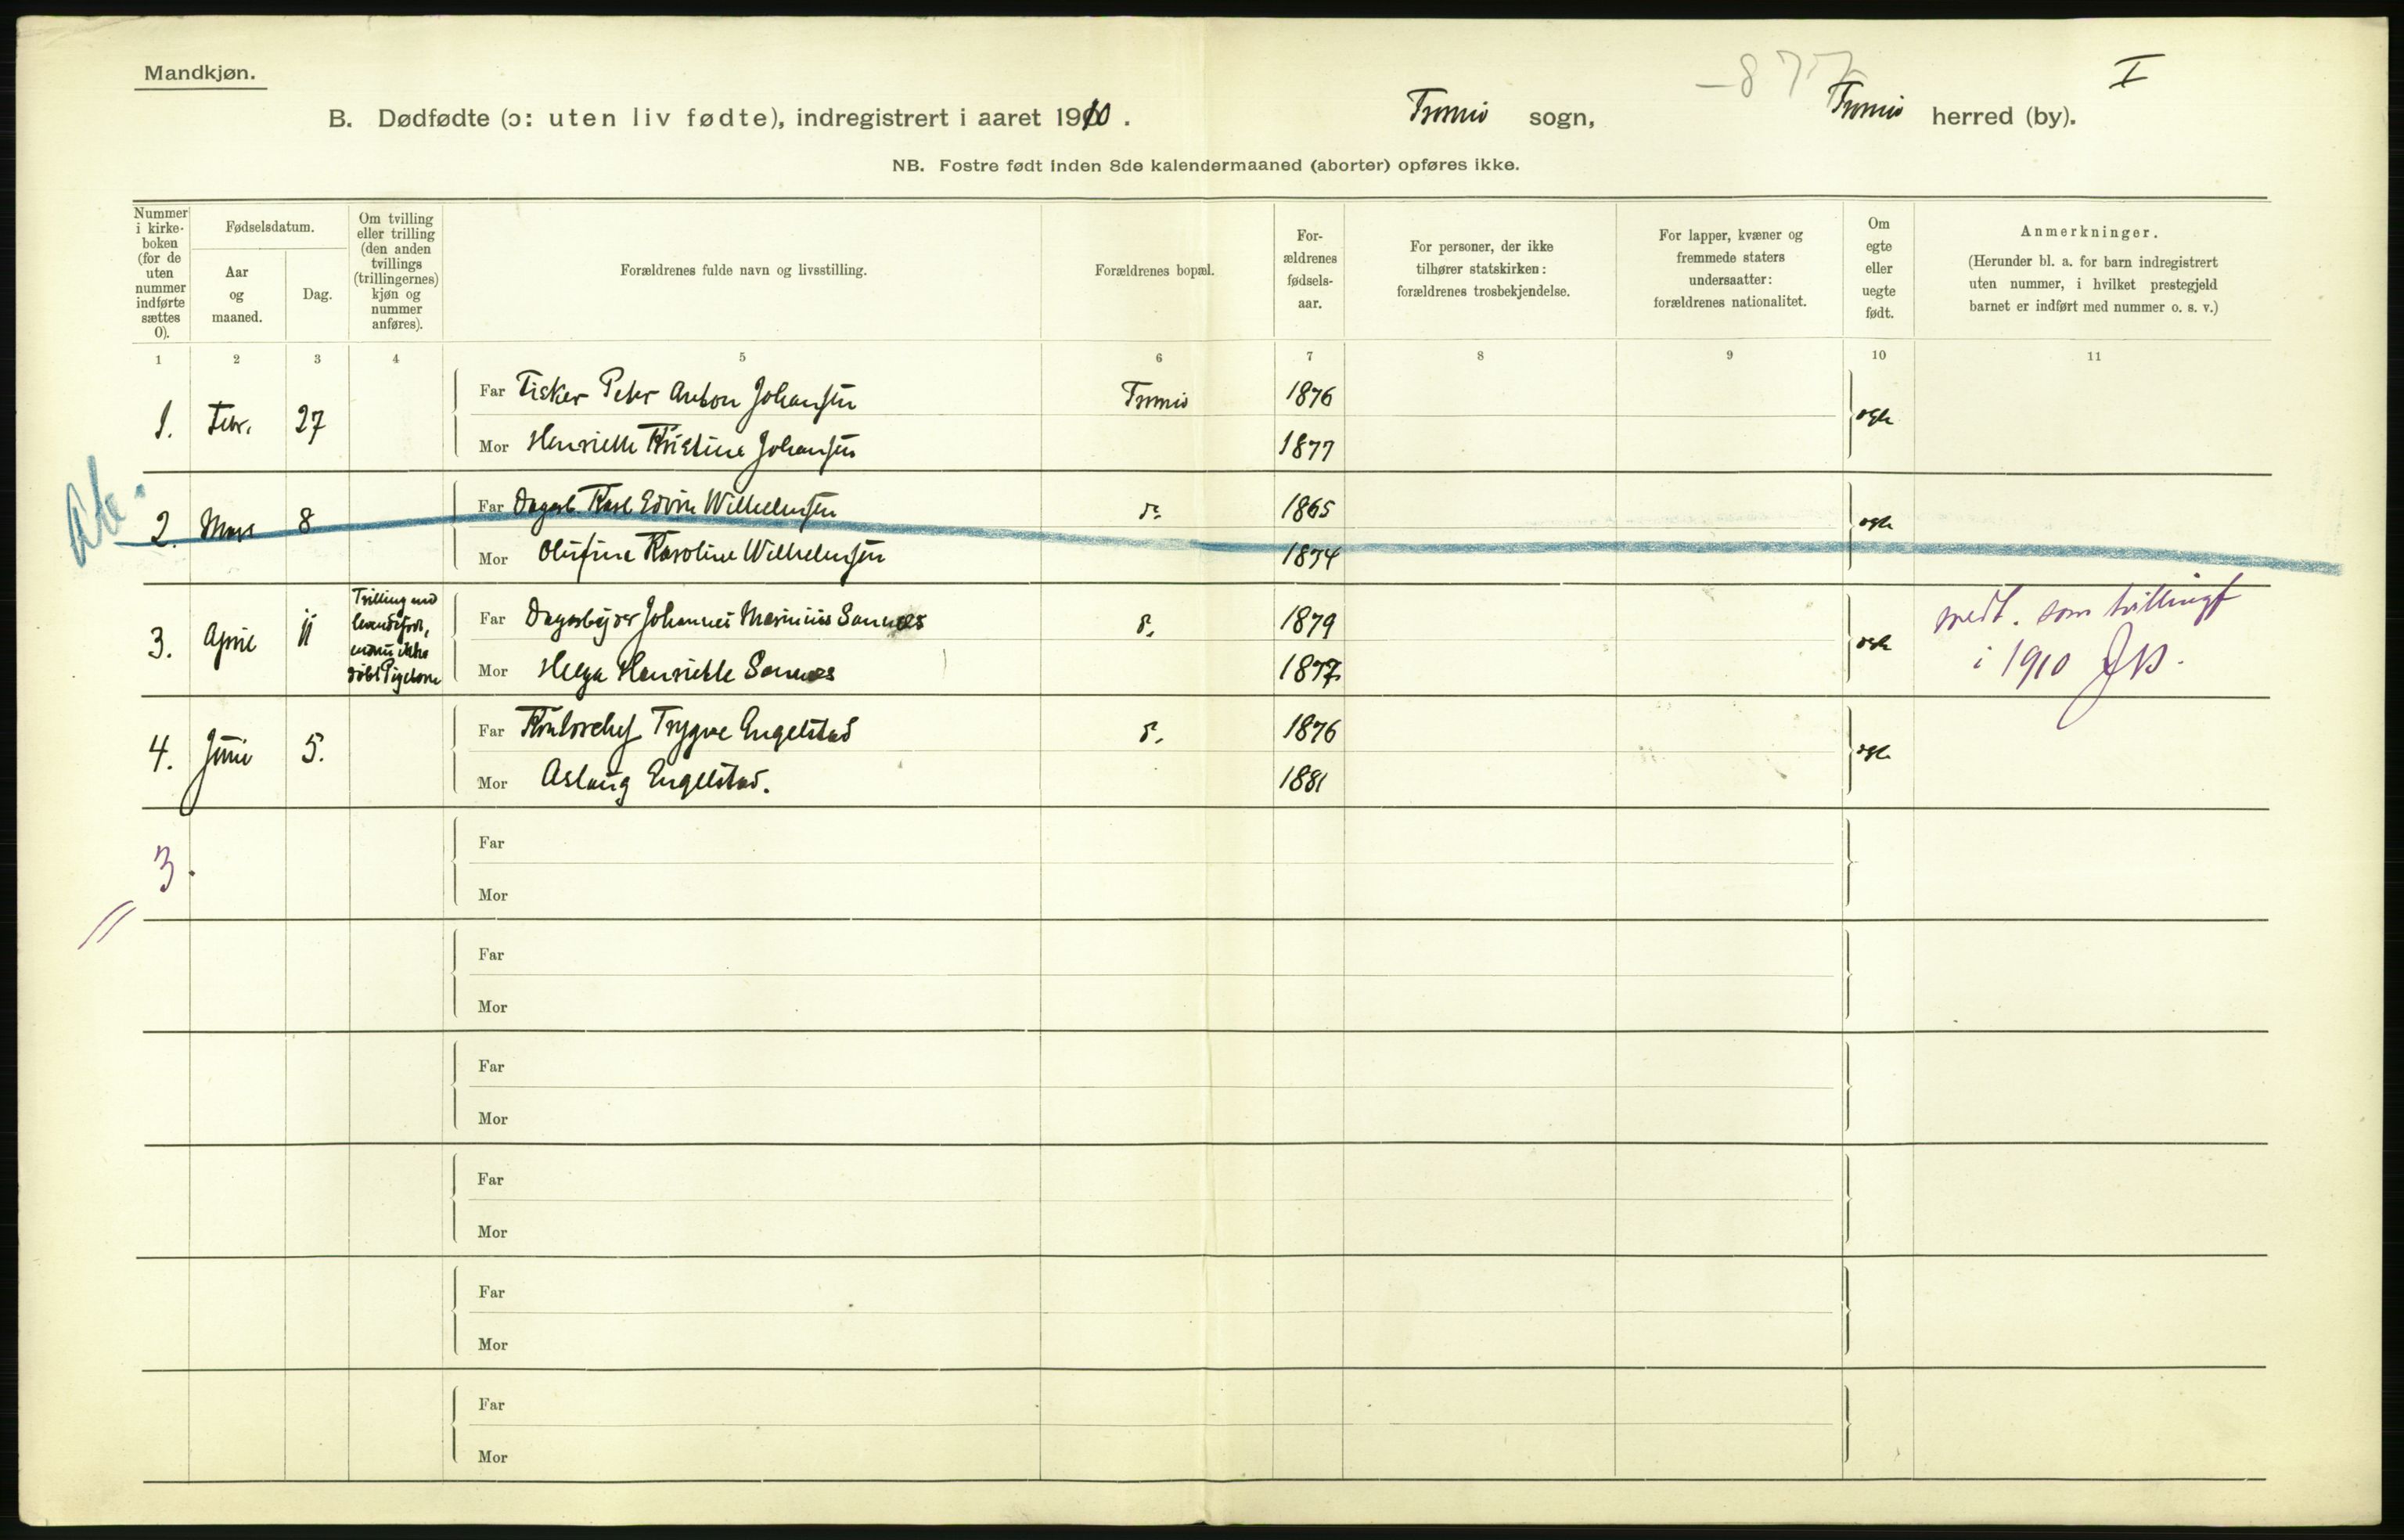 Mandkjøn.
- 877
I
B. Dødfødte (ɔ: uten liv fødte), indregistrert i aaret 1910. Tromsø sogn, Tromsø herred (by).
NB. Fostre født inden 8de kalendermaaned (aborter) opføres ikke.
Nummer i kirke-boken (for de uten nummer indførte sættes 0).
Fødselsdatum.
Aar og maaned.
Dag.
Om tvilling eller trilling (den anden tvillings (trillingernes) kjøn og nummer anføres).
Forældrenes fulde navn og livsstilling.
Forældrenes bopæl.
For-ældrenes fødsels-aar.
For personer, der ikke tilhører statskirken: forældrenes trosbekjendelse.
For lapper, kvæner og fremmede staters undersaatter: forældrenes nationalitet.
Om egte eller uegte født.
Anmerkninger.
(Herunder bl. a. for barn indregistrert uten nummer, i hvilket prestegjeld barnet er indført med nummer o. s. v.)
1 2 3 4 5 6 7 8 9 10 11
1. Febr. 27 Far Fisker Peter Anton Johansen Tromsø 1876 egte
Mor Henriette Kristine Johansen 1877
2. Mars 8 Far Dagarb. Karl Edvin Wilhelmsen d. 1865 egte
Mor Olufine Karoline Wilhelmsen 1874
3. April 11 Far Dagarbejder Johannes Marinius Sannes d. 1879 egte
Mor Helga Henriette Sannes 1877
medt. som tvillingf
i 1910
4. Juni 5. Far Kontorchef Trygve Engelstad d. 1876 egte
Mor Aslaug Engelstad. 1881
3.
Far
Mor
Far
Mor
Far
Mor
Far
Mor
Far
Mor
Far
Mor